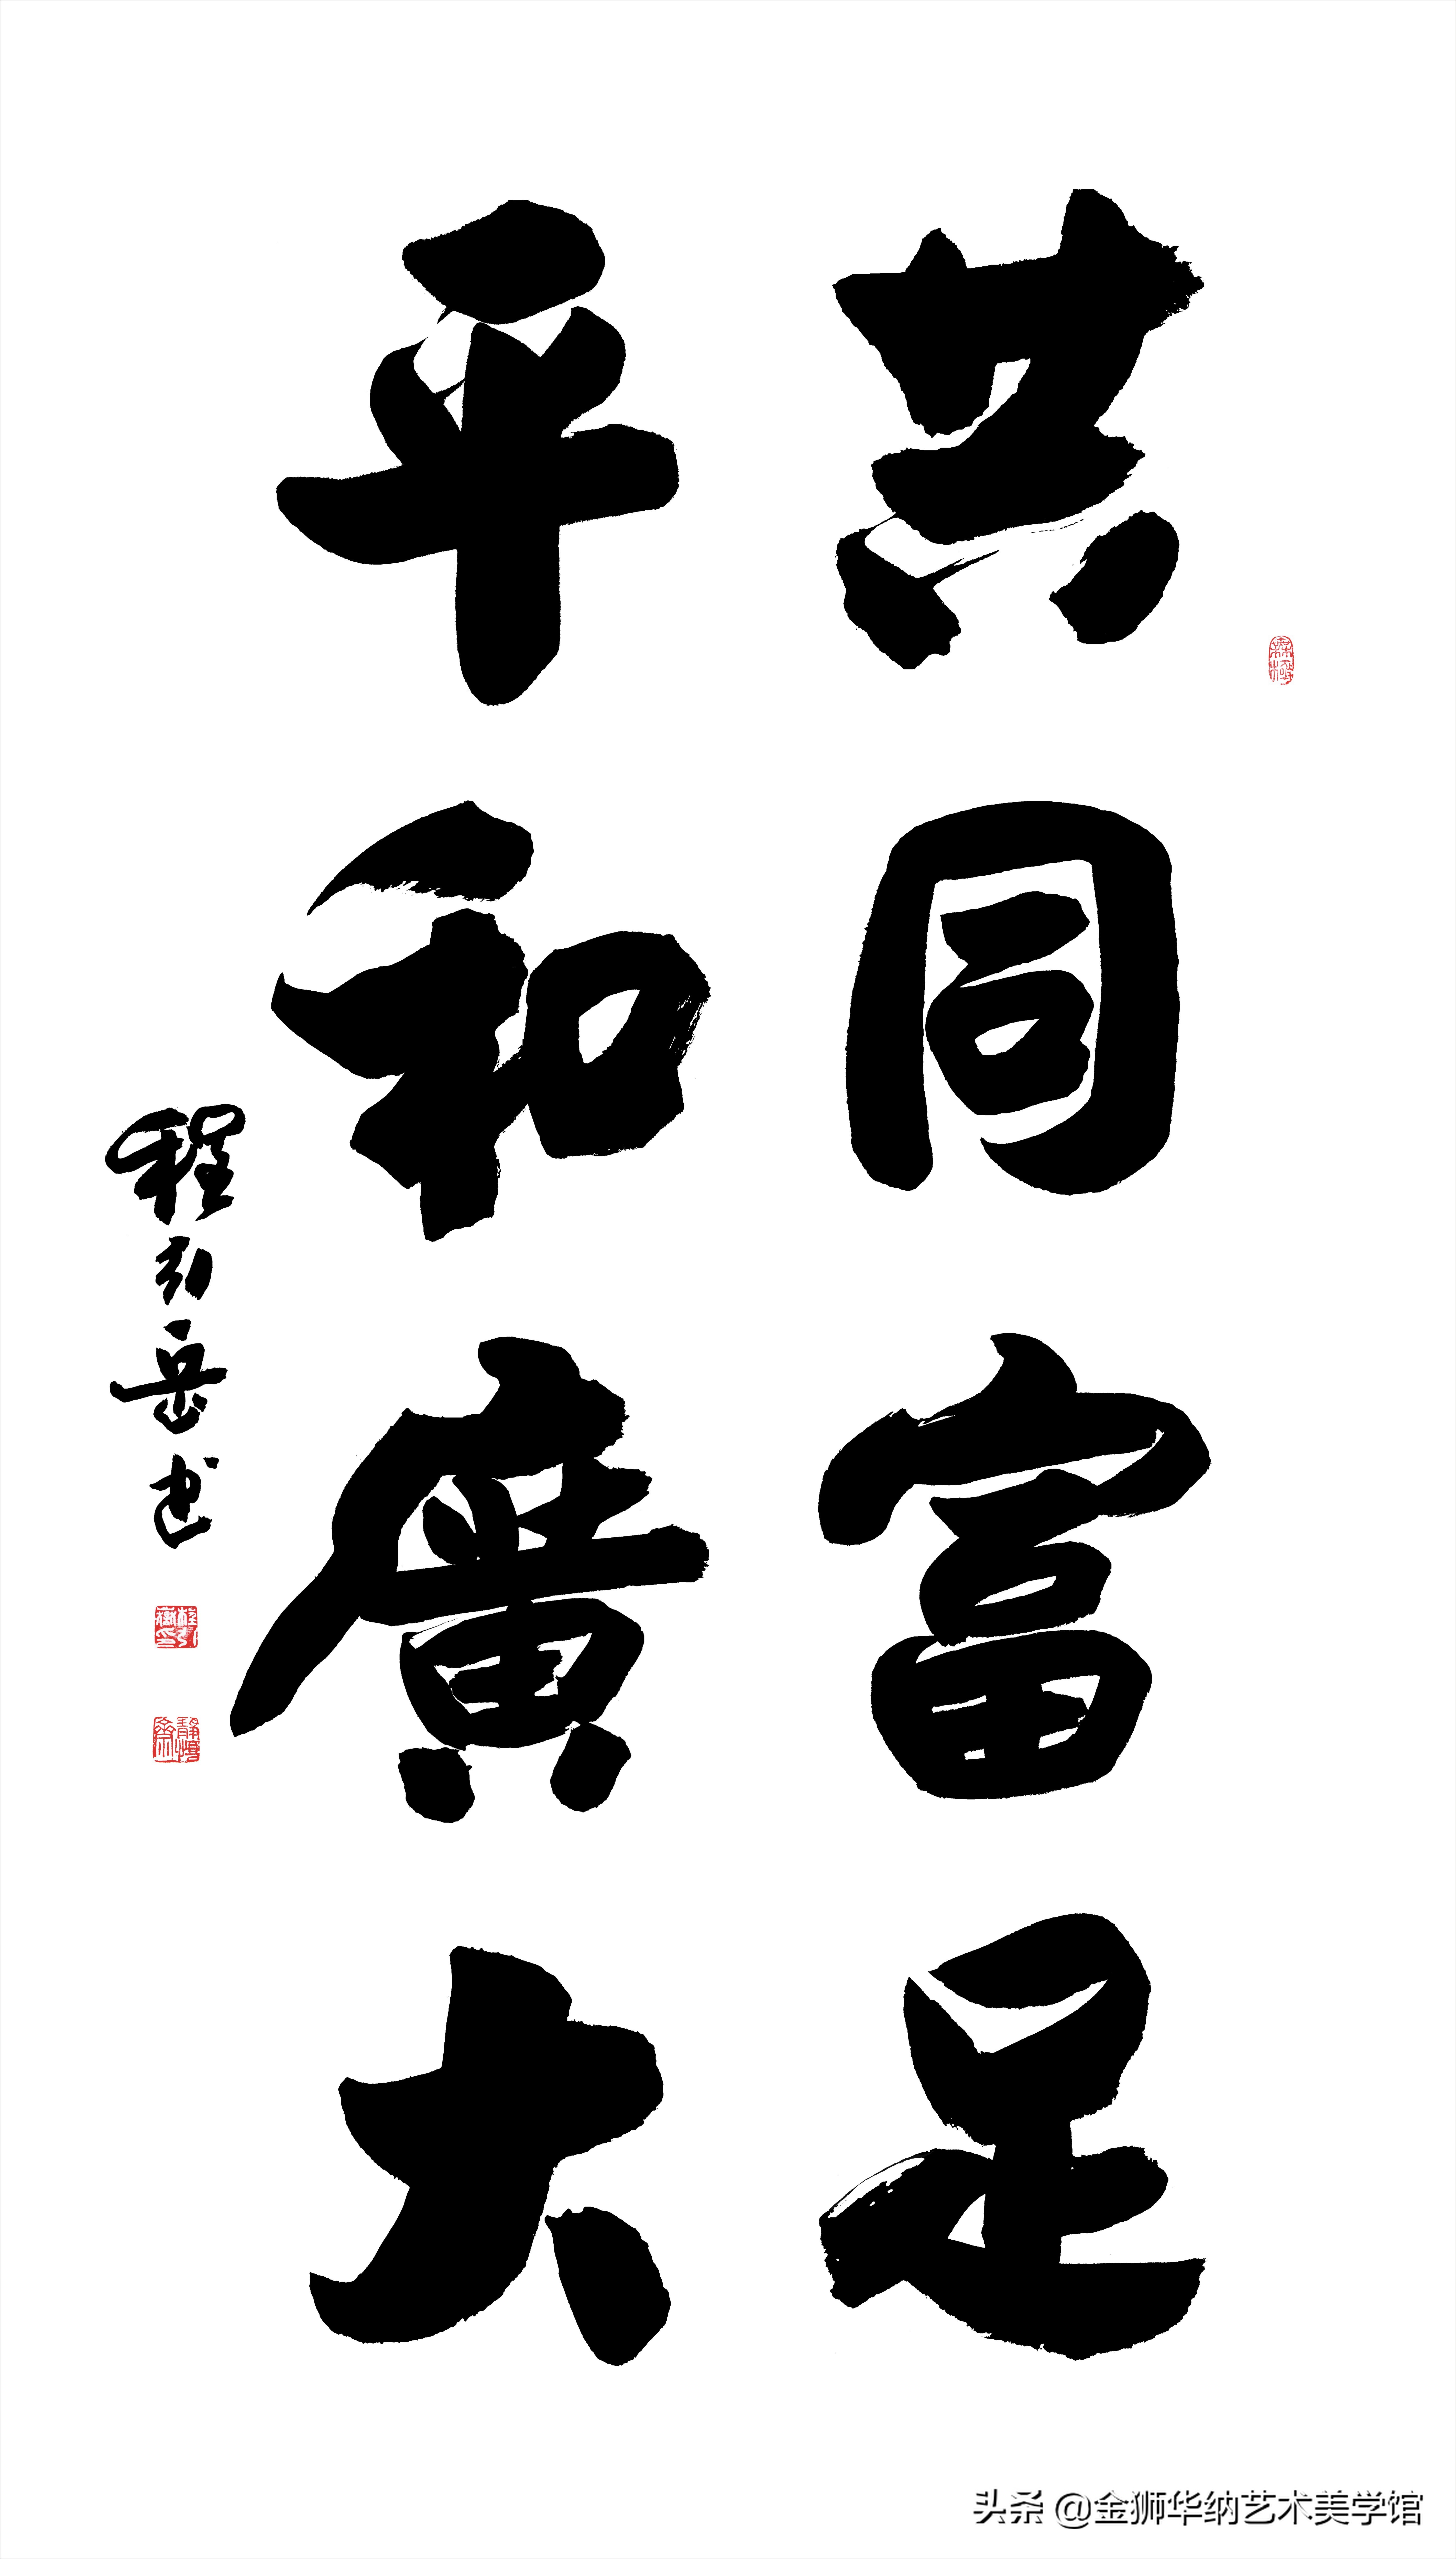 共同富足
平和廣大
程引岳书
头条 @金狮华纳艺术美学馆